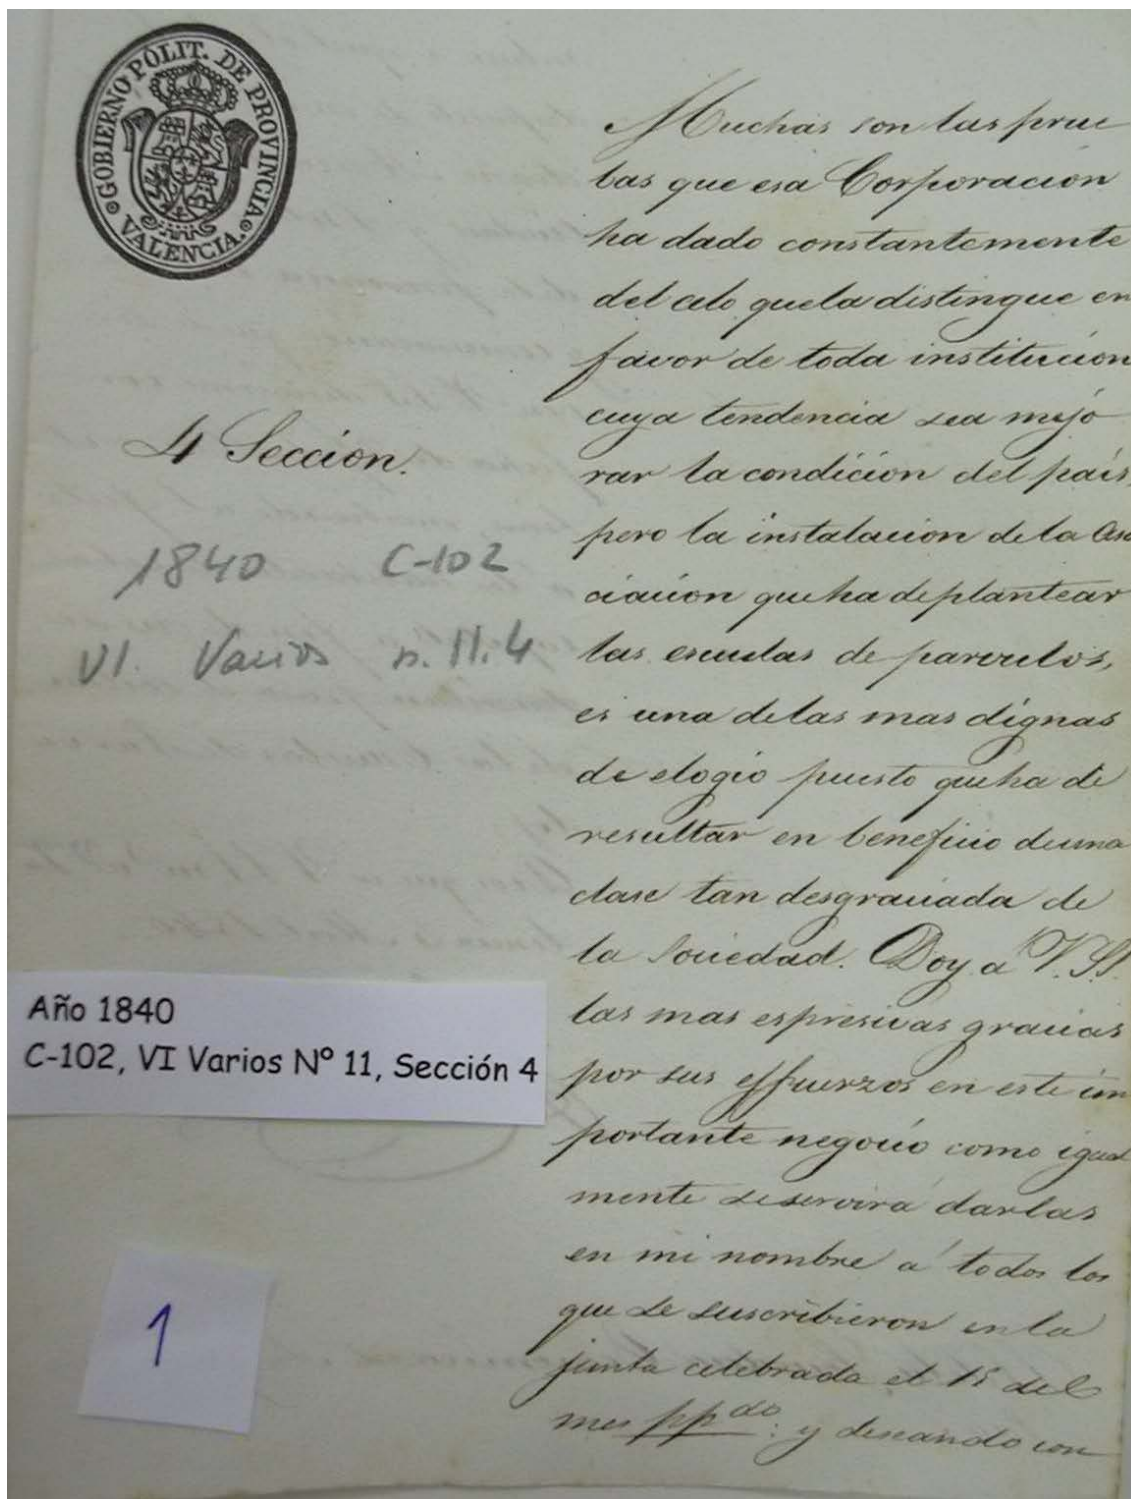 GOBIERNO POLIT. DE PROVINCIA.
VALENCIA.
4 Seccion.
1840 C-102
VI. Varios n. 11.4
Año 1840
C-102, VI Varios Nº 11, Sección 4
1
Muchas son las prue
bas que esa Corporacion
ha dado constantemente
del celo que la distingue en
favor de toda institucion
cuya tendencia sea mejo
rar la condicion del pais,
pero la instalacion de la Aso
ciacion que ha de plantear
las escuelas de parvulos,
es una de las mas dignas
de elogio puesto que ha de
resultar en beneficio de una
clase tan desgraciada de
la Sociedad. Doy á V.SS.
las mas espresivas gracias
por sus esfuerzos en este im
portante negocio como igual
mente se servirá darlas
en mi nombre á todos los
que se suscribieron en la
junta celebrada el 15 del
mes ppdo. y deseando con